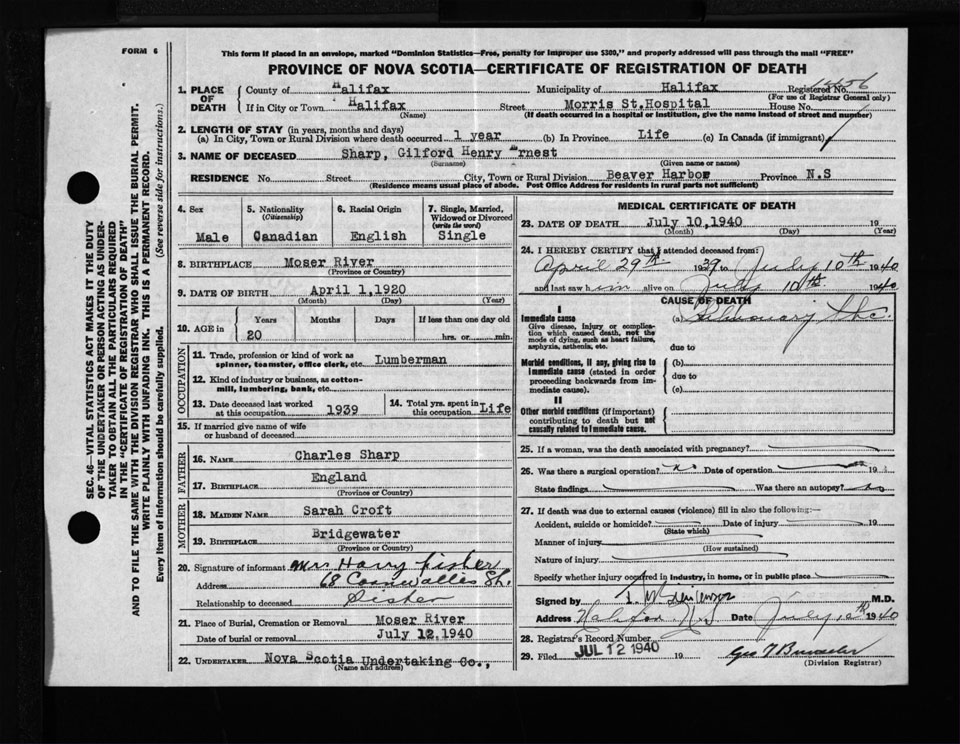 FORM 6
This form if placed in an envelope, marked "Dominion Statistics—Free, penalty for improper use $300," and properly addressed will pass through the mail "FREE"
PROVINCE OF NOVA SCOTIA—CERTIFICATE OF REGISTRATION OF DEATH
SEC. 46—VITAL STATISTICS ACT MAKES IT THE DUTY
OF THE UNDERTAKER OR PERSON ACTING AS UNDER-
TAKER TO OBTAIN ALL THE PARTICULARS REQUIRED
IN THE "CERTIFICATE OF REGISTRATION OF DEATH"
AND TO FILE THE SAME WITH THE DIVISION REGISTRAR WHO SHALL ISSUE THE BURIAL PERMIT.
WRITE PLAINLY WITH UNFADING INK. THIS IS A PERMANENT RECORD.
Every item of information should be carefully supplied. (See reverse side for instructions.)
1. PLACE OF DEATH
County of Halifax Municipality of Halifax Registered No.
(For use of Registrar General only)
If in City or Town Halifax Street Morris St.Hospital House No.
(Name) (If death occurred in a hospital or institution, give the name instead of street and number)
2. LENGTH OF STAY (in years, months and days)
(a) In City, Town or Rural Division where death occurred 1 year (b) In Province Life (c) In Canada (if immigrant)
3. NAME OF DECEASED Sharp, Gilford Henry Ernest
(Surname) (Given name or names)
RESIDENCE No. Street City, Town or Rural Division Beaver Harbor Province N.S
(Residence means usual place of abode. Post Office Address for residents in rural parts not sufficient)
4. Sex Male
5. Nationality (Citizenship) Canadian
6. Racial Origin English
7. Single, Married, Widowed or Divorced (write the word) Single
8. BIRTHPLACE Moser River
(Province or Country)
9. DATE OF BIRTH April 1,1920
(Month) (Day) (Year)
10. AGE in Years Months Days If less than one day old
20 hrs. or min.
OCCUPATION
11. Trade, profession or kind of work as spinner, teamster, office clerk, etc. Lumberman
12. Kind of industry or business, as cotton-mill, lumbering, bank, etc.
13. Date deceased last worked at this occupation 1939
14. Total yrs. spent in this occupation Life
15. If married give name of wife or husband of deceased
FATHER
16. NAME Charles Sharp
17. BIRTHPLACE England
(Province or Country)
MOTHER
18. MAIDEN NAME Sarah Croft
19. BIRTHPLACE Bridgewater
(Province or Country)
20. Signature of informant Mrs Harry Fisher
Address 68 Cornwallis St.
Relationship to deceased Sister
21. Place of Burial, Cremation or Removal Moser River
Date of burial or removal July 12,1940
22. UNDERTAKER Nova Scotia Undertaking Co.,
(Name and address)
MEDICAL CERTIFICATE OF DEATH
23. DATE OF DEATH July 10,1940 19
(Month) (Day) (Year)
24. I HEREBY CERTIFY that I attended deceased from:
April 29th 1939 to July 10th 1940
and last saw him alive on July 10th 1940
CAUSE OF DEATH
I
Immediate cause (a) Pulmonary tbc.
Give disease, injury or complication which caused death, not the mode of dying, such as heart failure, asphyxia, asthenia, etc.
due to
Morbid conditions, if any, giving rise to immediate cause (stated in order proceeding backwards from immediate cause).
(b)
due to
(c)
II
Other morbid conditions (if important) contributing to death but not causally related to immediate cause.
25. If a woman, was the death associated with pregnancy?
26. Was there a surgical operation? no Date of operation 19
State findings Was there an autopsy? no
27. If death was due to external causes (violence) fill in also the following:—
Accident, suicide or homicide? Date of injury 19
(State which)
Manner of injury
(How sustained)
Nature of injury
Specify whether injury occurred in industry, in home, or in public place
Signed by M.D.
Address Halifax N.S Date July 10th 1940
28. Registrar's Record Number
29. Filed JUL 12 1940 19
(Division Registrar)